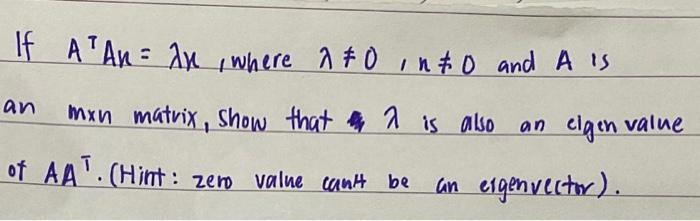 If AᵀAx = λx , where λ ≠ 0 , x ≠ 0 and A is
an mxn matrix, show that λ is also an eigen value
of AAᵀ. (Hint : zero value can't be an eigenvector).